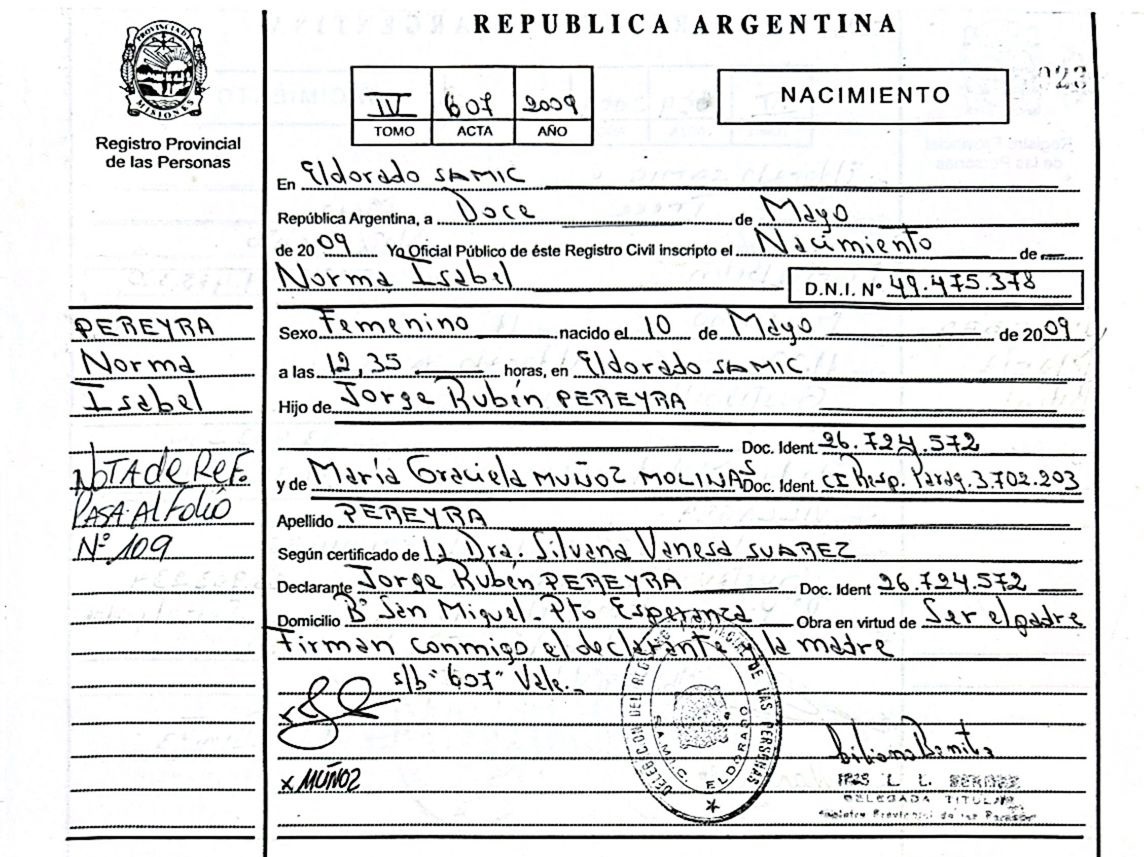 REPUBLICA ARGENTINA
PROVINCIA DE MISIONES
Registro Provincial
de las Personas
IV 607 2009
TOMO ACTA AÑO
NACIMIENTO
023
En Eldorado SAMIC
República Argentina, a Doce de Mayo
de 2009 Yo Oficial Público de éste Registro Civil inscripto el Nacimiento de
Norma Isabel D.N.I. Nº 49.475.378
PEREYRA
Norma
Isabel
Sexo Femenino nacido el 10 de Mayo de 2009
a las 12,35 horas, en Eldorado SAMIC
Hijo de Jorge Rubén PEREYRA
Doc. Ident. 26.724.572
y de María Graciela MUÑOZ MOLINAS Doc. Ident. CI Resp. Parag. 3.702.203
NOTA de REF.
PASA Al Folio
Nº 109
Apellido PEREYRA
Según certificado de La Dra. Silvana Vanesa SUAREZ
Declarante Jorge Rubén PEREYRA Doc. Ident 26.724.572
Domicilio Bº San Miguel - Pto Esperanza Obra en virtud de Ser el padre
Firman conmigo el declarante y la madre
s/b "607" Vale.
x
x MUÑOZ
DELEGACION DEL REGISTRO PROVINCIAL DE LAS PERSONAS
S.A.M.I.C. ELDORADO
DELEGADA TITULAR
Registro Provincial de las Personas